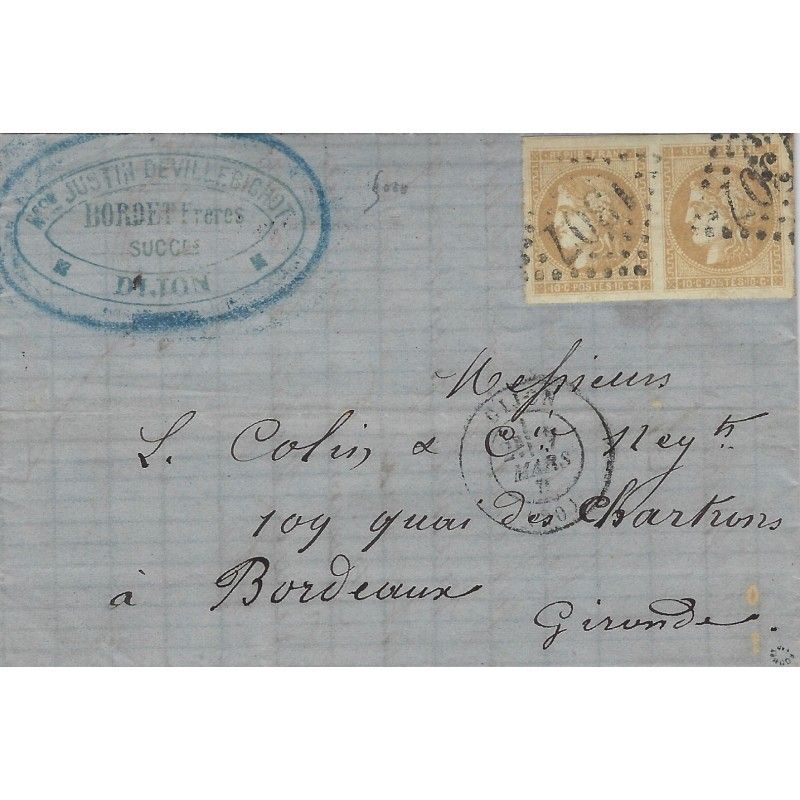 Mson JUSTIN DEVILLEBICHOT
BORDET Frères
SUCCRS
DIJON
5000
REPUB FRANC
10·C·POSTES·10·C
REPUB
10·C·POSTES·10·C
1307
1307
DIJON
MARS
(20)
Messieurs
L. Colin & Cie Neg ts
109 quai des Chartrons
à Bordeaux
Gironde.